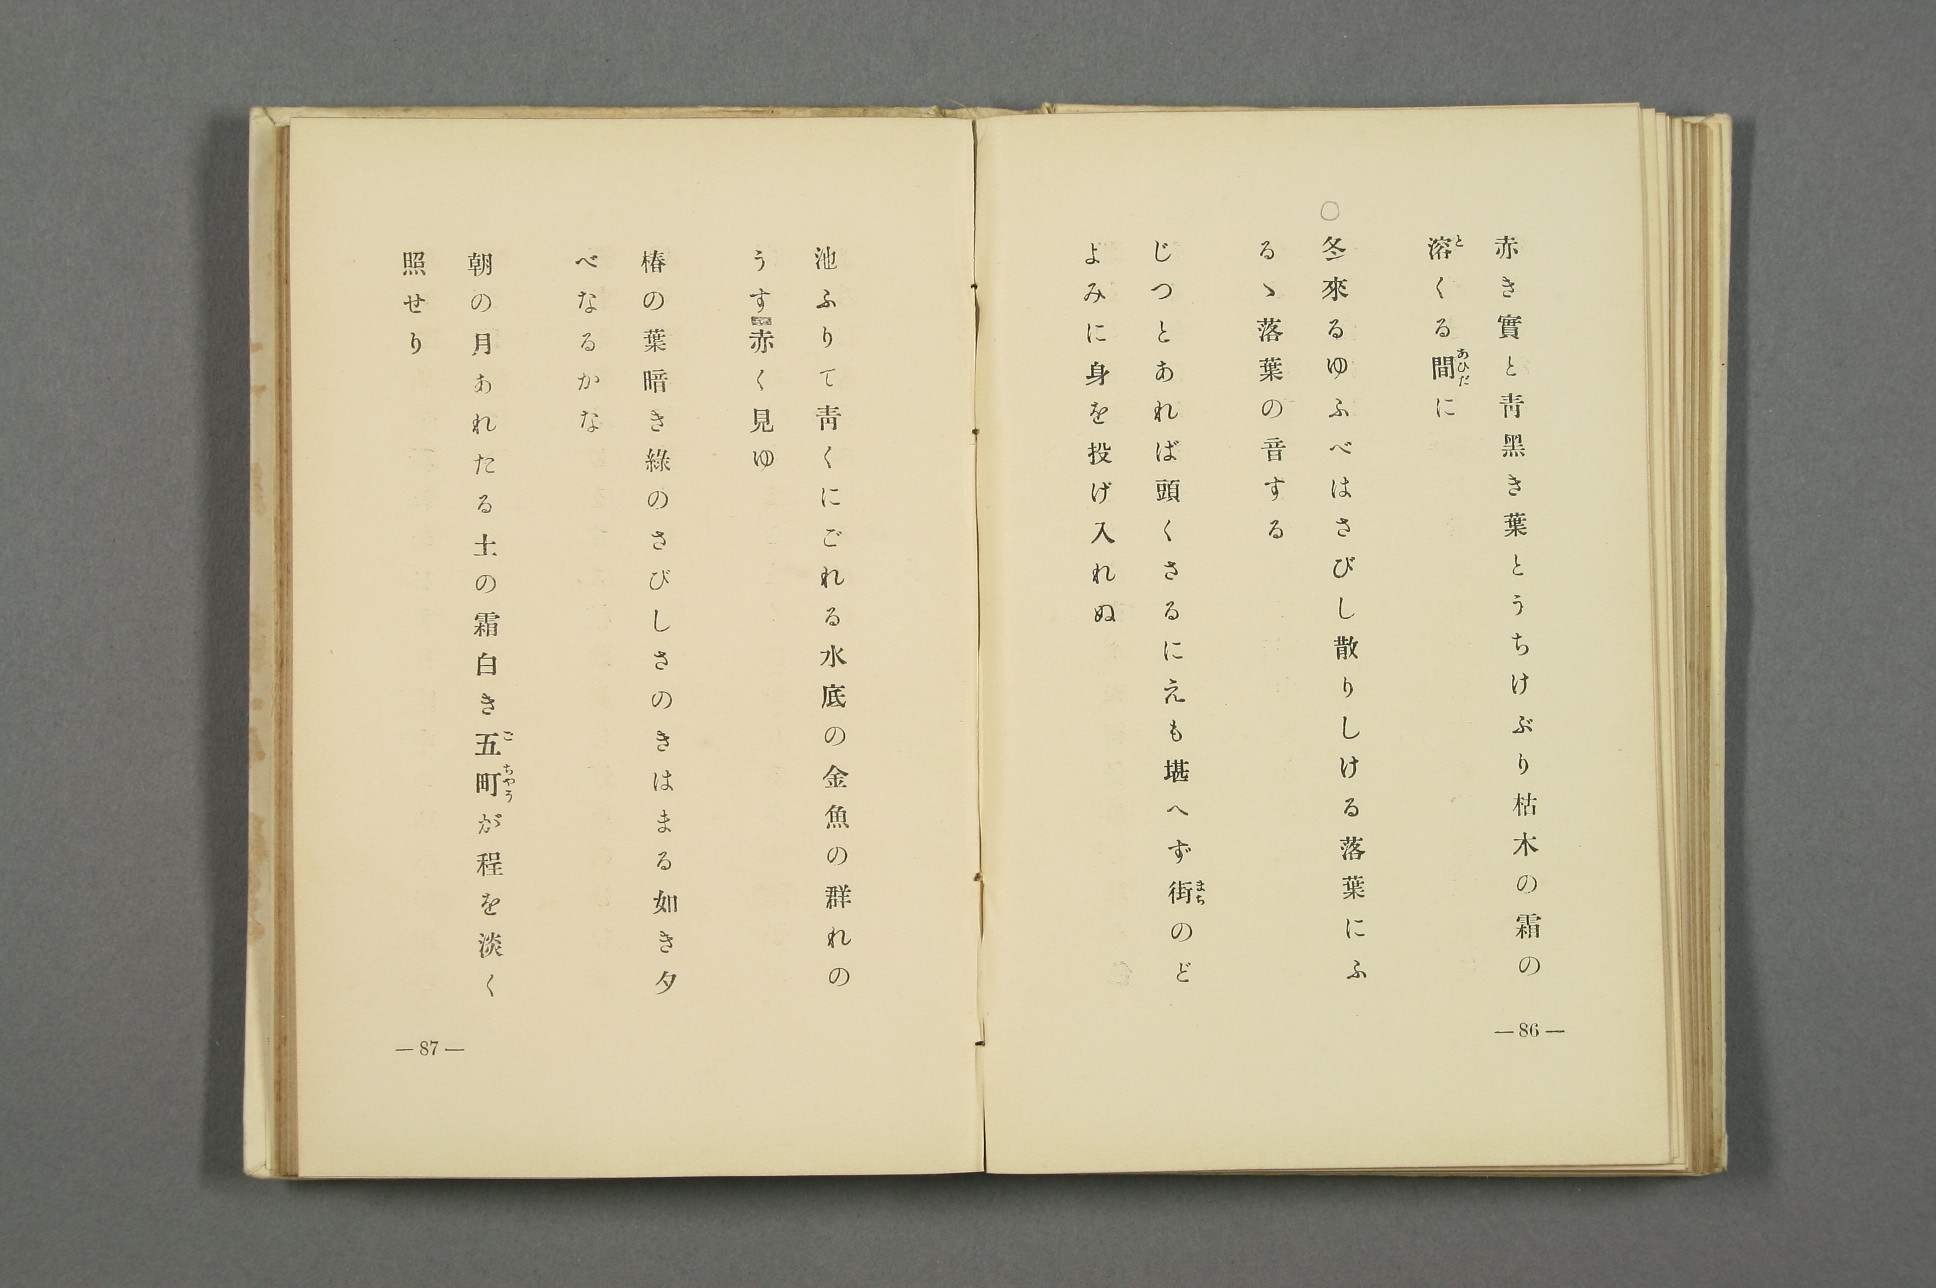 赤き實と靑黑き葉とうちけぶり枯木の霜の
溶くる間に
○冬來るゆふべはさびし散りしける落葉にふ
るゝ落葉の音する
じつとあれば頭くさるにえも堪へず街のど
よみに身を投げ入れぬ
—86—
池ふりて靑くにごれる水底の金魚の群れの
うす赤く見ゆ
椿の葉暗き綠のさびしさのきはまる如き夕
べなるかな
朝の月あれたる土の霜白き五町が程を淡く
照せり
—87—